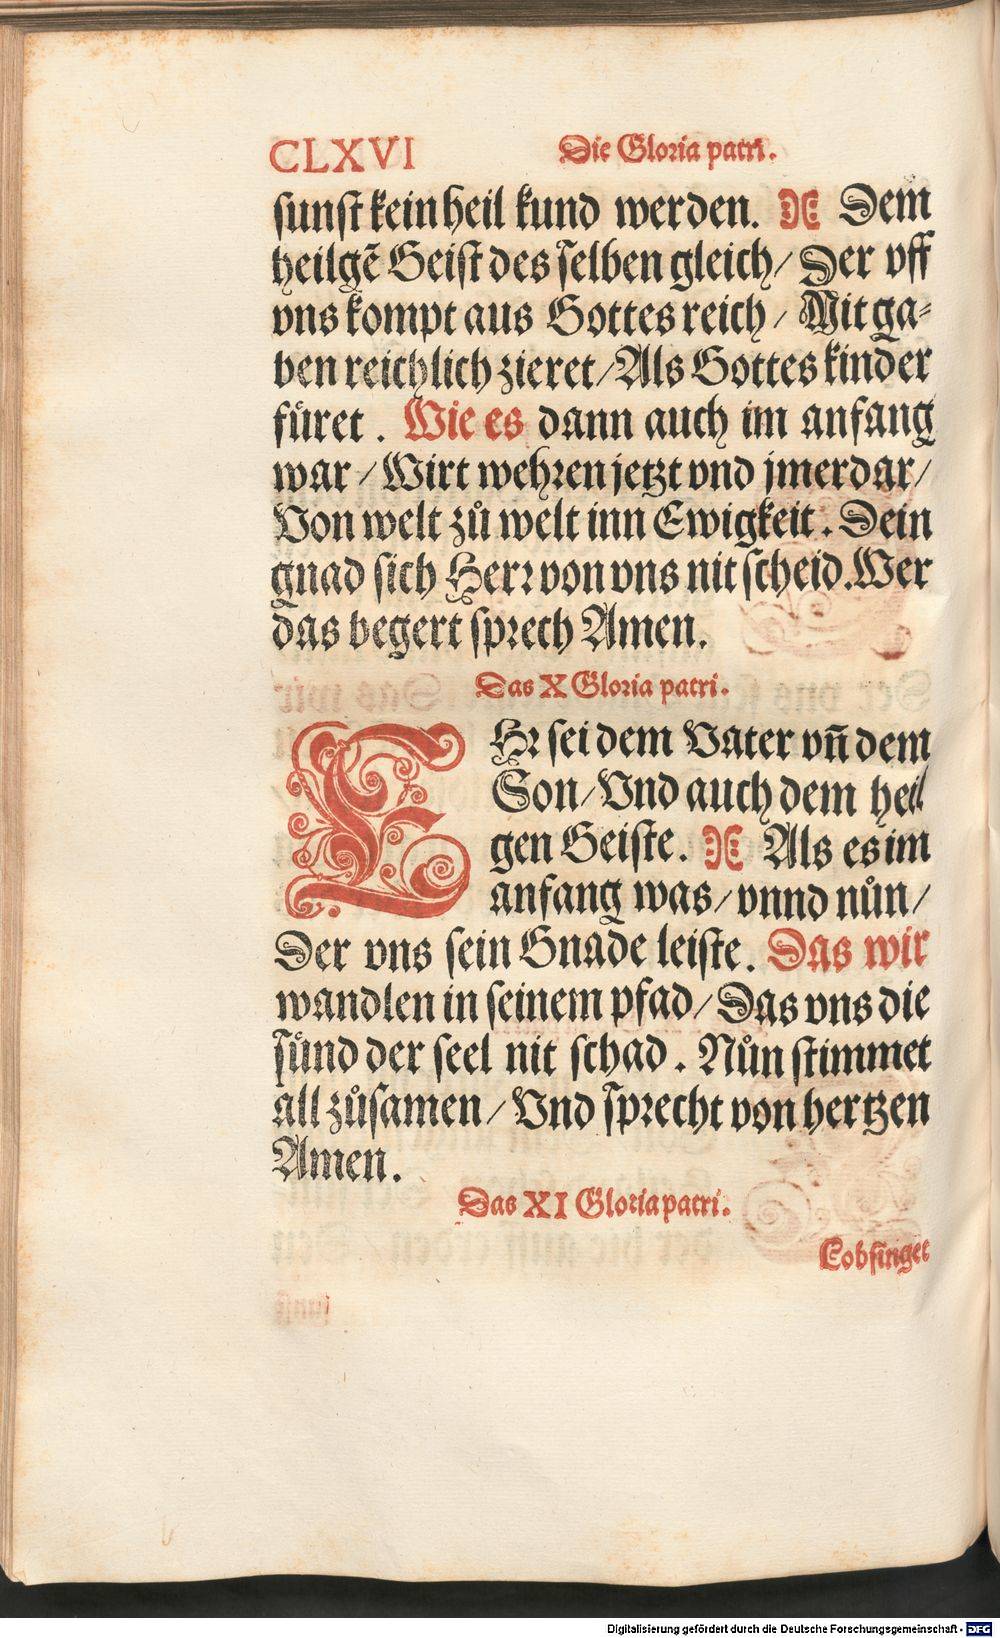 CLXVI Die Gloria patri.
sunst kein heil kund werden. Dem
heilgē Geist des selben gleich/ Der vff
vns kompt aus Gottes reich/ Mit ga-
ben reichlich zieret/ Als Gottes kinder
fůret. Wie es dann auch im anfang
war/ Wirt wehren jetzt vnd jmerdar/
Von welt zů welt inn Ewigkeit. Dein
gnad sich Herr von vns nit scheid. Wer
das begert sprech Amen.
Das X Gloria patri.
EHr sei dem Vater vn̄ dem
Son/ Vnd auch dem heil
gen Geiste. Als es im
anfang was/ vnnd nůn/
Der vns sein Gnade leiste. Das wir
wandlen in seinem pfad/ Das vns die
sůnd der seel nit schad. Nůn stimmet
all zůsamen/ Vnd sprecht von hertzen
Amen.
Das XI Gloria patri.
Lobsinget
Digitalisierung gefördert durch die Deutsche Forschungsgemeinschaft - DFG